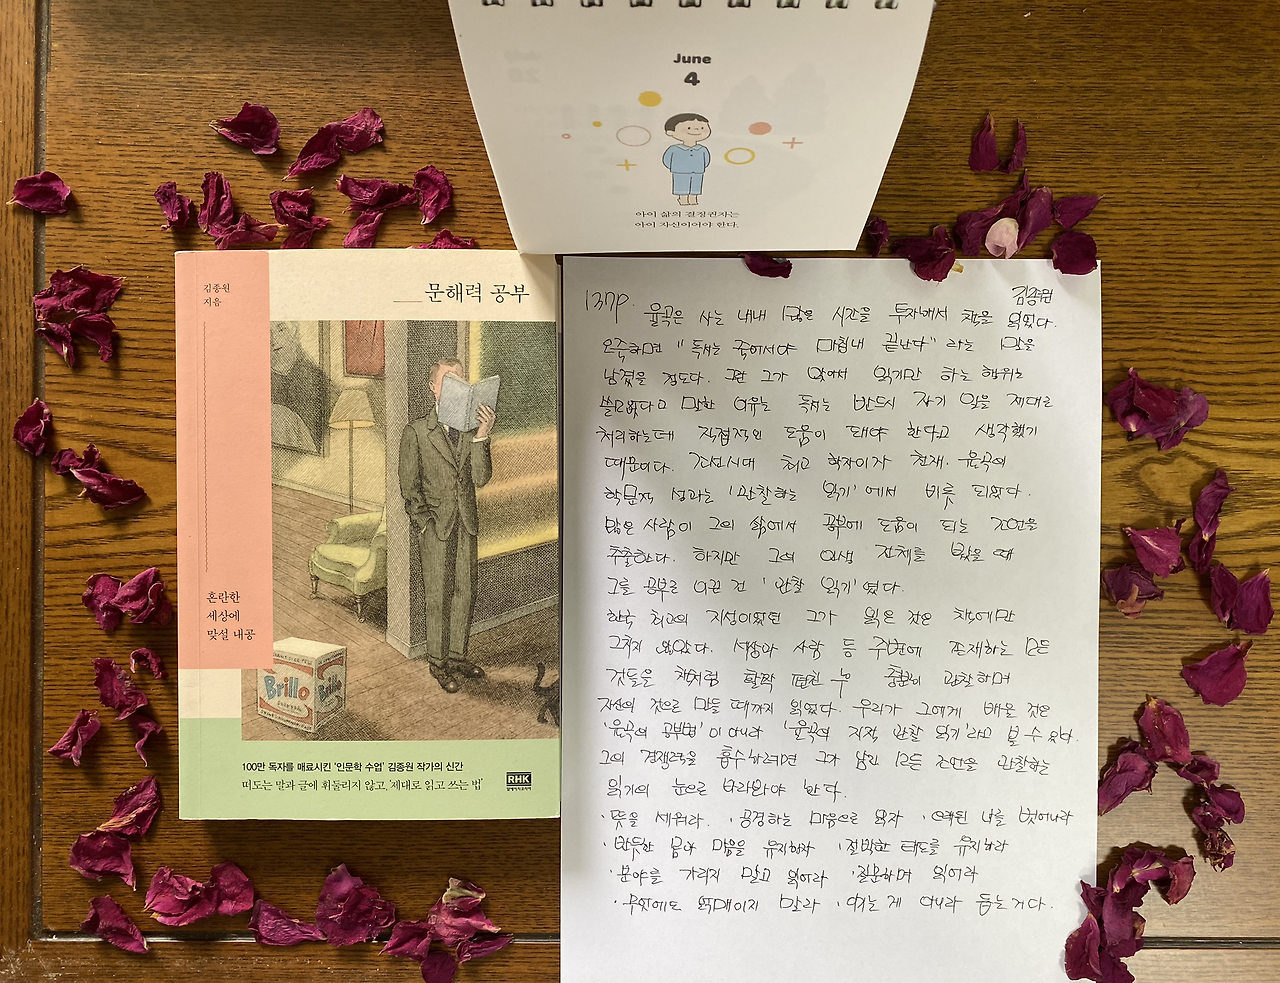 June
4
아이 삶의 결정권자는
아이 자신이어야 한다.
김종원
지음
문해력 공부
혼란한
세상에
맞설 내공
Brillo
Brillo
100만 독자를 매료시킨 '인문학 수업' 김종원 작가의 신간
떠도는 말과 글에 휘둘리지 않고, '제대로 읽고 쓰는 법'
RHK
알에이치코리아
137p.
김종원
율곡은 사는 내내 많은 시간을 투자해서 책을 읽었다.
오죽하면 "독서는 죽어서야 마침내 끝난다" 라는 말을
남겼을 정도다. 그런 그가 앉아서 읽기만 하는 행위는
쓸모없다고 말한 이유는 독서는 반드시 자기 일을 제대로
처리하는데 직접적인 도움이 돼야 한다고 생각했기
때문이다. 조선시대 최고 학자이자 천재. 율곡의
학문적 성과는 '관찰하는 읽기'에서 비롯 되었다.
많은 사람이 그의 삶에서 공부에 도움이 되는 조언을
추출한다. 하지만 그의 인생 전체를 봤을 때
그를 공부로 이끈 건 '관찰 읽기'였다.
한국 최고의 지성이었던 그가 읽은 것은 책에만
그치지 않았다. 세상과 사람 등 주변에 존재하는 모든
것들을 책처럼 활짝 펼친 후 충분히 관찰하며
자신의 것으로 만들 때까지 읽었다. 우리가 그에게 배울 것은
'율곡의 공부법'이 아니라 '율곡의 지적 관찰 읽기'라고 볼 수 있다.
그의 경쟁력을 흡수하려면 그가 남긴 모든 조언을 관찰하는
읽기의 눈으로 바라봐야 한다.
· 뜻을 세워라. · 공경하는 마음으로 읽자 · 어제의 나를 벗어나라
· 반듯한 몸과 마음을 유지하자 · 절박한 태도를 유지하라
· 분야를 가리지 말고 읽어라 · 질문하며 읽어라
· 무엇에도 얽매이지 말라 · 아는 게 아니라 듣는 거다.